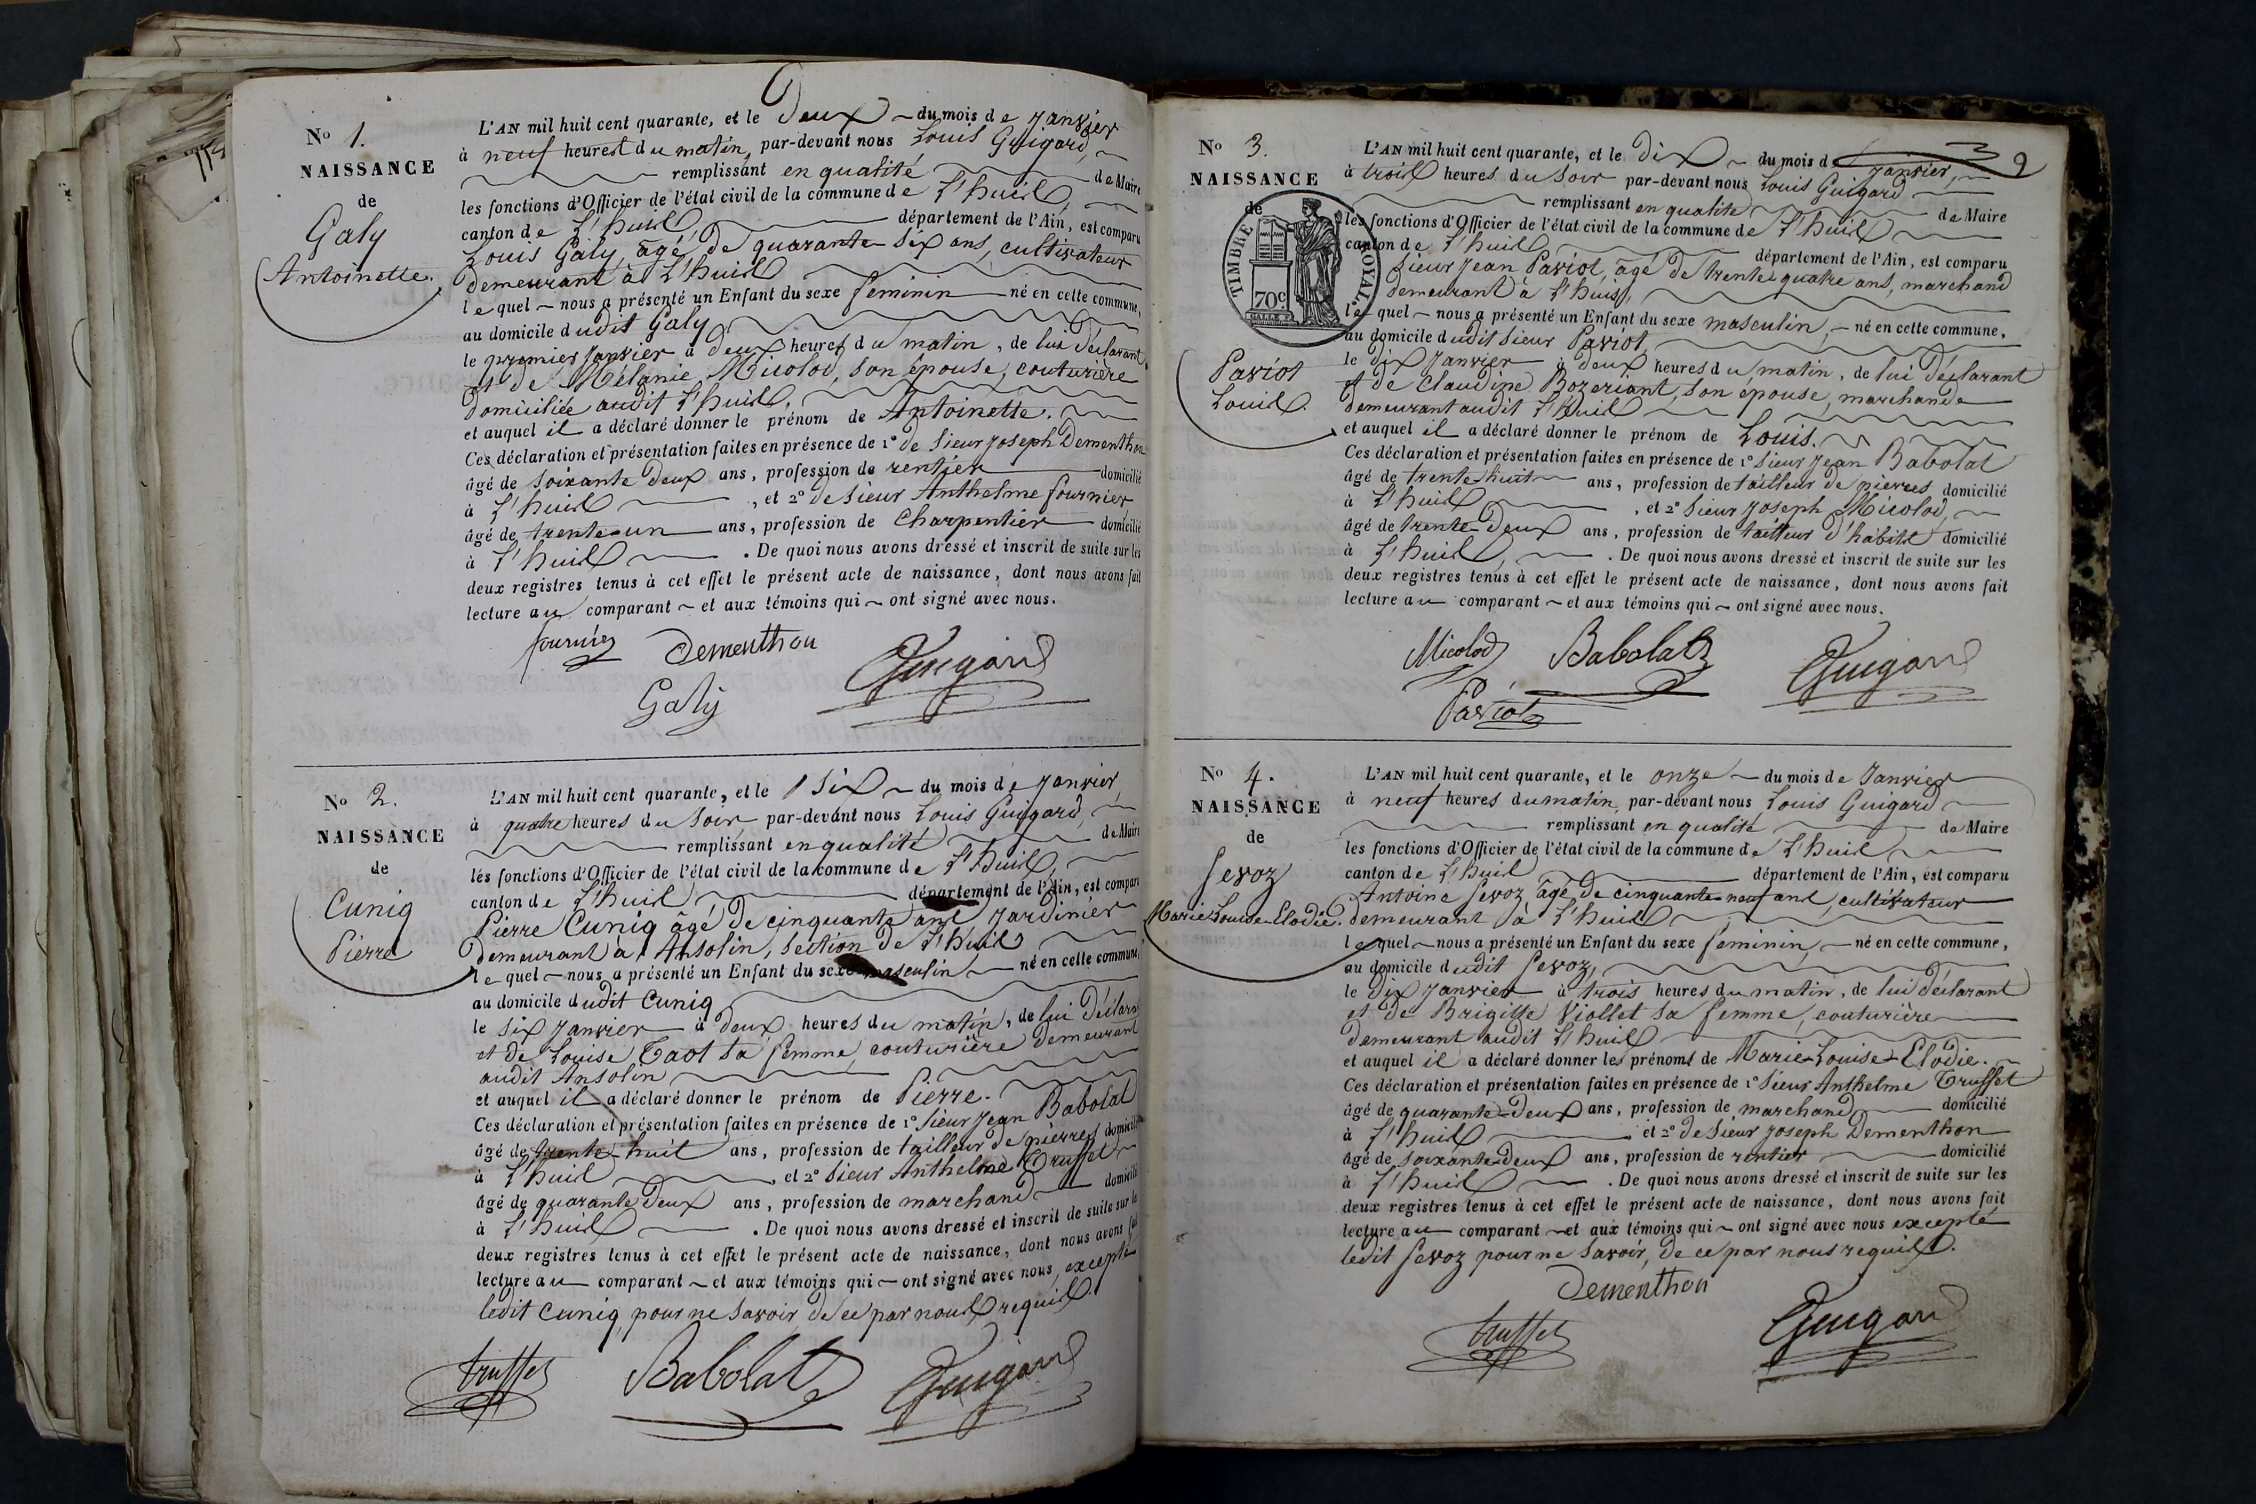 N.º 1.
NAISSANCE
de
Galy
Antoinette.
L'AN mil huit cent quarante, et le Deux du mois de Janvier
à neuf heures du matin, par-devant nous Louis Guigard,
remplissant en qualité de Maire
les fonctions d'Officier de l'état civil de la commune de L'huis,
canton de L'huis département de l'Ain, est comparu
Louis Galy, âgé de quarante six ans, cultivateur
demeurant à L'huis
lequel nous a présenté un Enfant du sexe féminin né en cette commune,
au domicile dudit Galy
le premier Janvier à deux heures du matin, de lui déclarant
et de Mélanie Micolod, son épouse, couturière
domiciliée audit L'huis,
et auquel il a déclaré donner le prénom de Antoinette.
Ces déclaration et présentation faites en présence de 1º de Sieur Joseph Dementhon
âgé de soixante deux ans, profession de rentier domicilié
à L'huis, et 2º de Sieur Anthelme fournier
âgé de trente-un ans, profession de Charpentier domicilié
à L'huis. De quoi nous avons dressé et inscrit de suite sur les
deux registres tenus à cet effet le présent acte de naissance, dont nous avons fait
lecture au comparant et aux témoins qui ont signé avec nous.
fournier Dementhon Guigard
Galy
N.º 2.
NAISSANCE
de
Cuniq
Pierre
L'AN mil huit cent quarante, et le Six du mois de Janvier,
à quatre heures du Soir par-devant nous Louis Guigard,
remplissant en qualité de Maire
les fonctions d'Officier de l'état civil de la commune de L'huis,
canton de L'huis département de l'Ain, est comparu
Pierre Cuniq âgé de cinquante ans Jardinier
demeurant à Ansolin, Section de L'huis
lequel nous a présenté un Enfant du sexe masculin né en cette commune,
au domicile dudit Cuniq
le six Janvier à deux heures du matin, de lui déclarant
et de Louise Taot sa femme, couturière demeurant
audit Ansolin
et auquel il a déclaré donner le prénom de Pierre.
Ces déclaration et présentation faites en présence de 1º Sieur Jean Babolat
âgé de trente-huit ans, profession de tailleur de pierres domicilié
à L'huis, et 2º Sieur Anthelme Truffet
âgé de quarante Deux ans, profession de marchand domicilié
à L'huis. De quoi nous avons dressé et inscrit de suite sur les
deux registres tenus à cet effet le présent acte de naissance, dont nous avons fait
lecture au comparant et aux témoins qui ont signé avec nous, excepté
ledit Cuniq, pour ne savoir, de ce par nous requis.
truffet Babolat Guigard
2
N.º 3.
NAISSANCE
de
TIMBRE ROYAL.
70c.
Paviot
Louis.
L'AN mil huit cent quarante, et le Dix du mois de Janvier,
à trois heures du Soir par-devant nous Louis Guigard
remplissant en qualité de Maire
les fonctions d'Officier de l'état civil de la commune de L'huis
canton de L'huis département de l'Ain, est comparu
Sieur Jean Paviot, âgé de trente-quatre ans, marchand
demeurant à L'huis,
lequel nous a présenté un Enfant du sexe masculin, né en cette commune,
au domicile dudit Sieur Paviot,
le dix Janvier à deux heures du matin, de lui déclarant
et de Claudine Bozeriant, son épouse, marchande
demeurant audit L'huis
et auquel il a déclaré donner le prénom de Louis.
Ces déclaration et présentation faites en présence de 1º Sieur Jean Babolat
âgé de trente-huit ans, profession de tailleur de pierres domicilié
à L'huis, et 2º Sieur Joseph Micolod,
âgé de trente-Deux ans, profession de tailleur d'habits domicilié
à L'huis,. De quoi nous avons dressé et inscrit de suite sur les
deux registres tenus à cet effet le présent acte de naissance, dont nous avons fait
lecture au comparant et aux témoins qui ont signé avec nous.
Micolod Babolat Guigard
Paviot
N.º 4.
NAISSANCE
de
Sevoz
Marie-Louise-Elodie.
L'AN mil huit cent quarante, et le onze du mois de Janvier
à neuf heures du matin, par-devant nous Louis Guigard
remplissant en qualité de Maire
les fonctions d'Officier de l'état civil de la commune de L'huis
canton de L'huis département de l'Ain, est comparu
Antoine Sevoz âgé de cinquante-neuf ans, cultivateur
demeurant à L'huis
lequel nous a présenté un Enfant du sexe féminin, né en cette commune,
au domicile dudit Sevoz,
le dix Janvier à trois heures du matin, de lui déclarant
et de Brigitte Viollet sa femme, couturière
demeurant audit L'huis
et auquel il a déclaré donner les prénoms de Marie-Louise-Elodie.
Ces déclaration et présentation faites en présence de 1º Sieur Anthelme Truffet
âgé de quarante-Deux ans, profession de marchand domicilié
à L'huis et 2º de Sieur Joseph Dementhon
âgé de soixante-deux ans, profession de rentier domicilié
à L'huis. De quoi nous avons dressé et inscrit de suite sur les
deux registres tenus à cet effet le présent acte de naissance, dont nous avons fait
lecture au comparant et aux témoins qui ont signé avec nous excepté
ledit Sevoz pour ne savoir, de ce par nous requis.
Dementhon
truffet Guigard